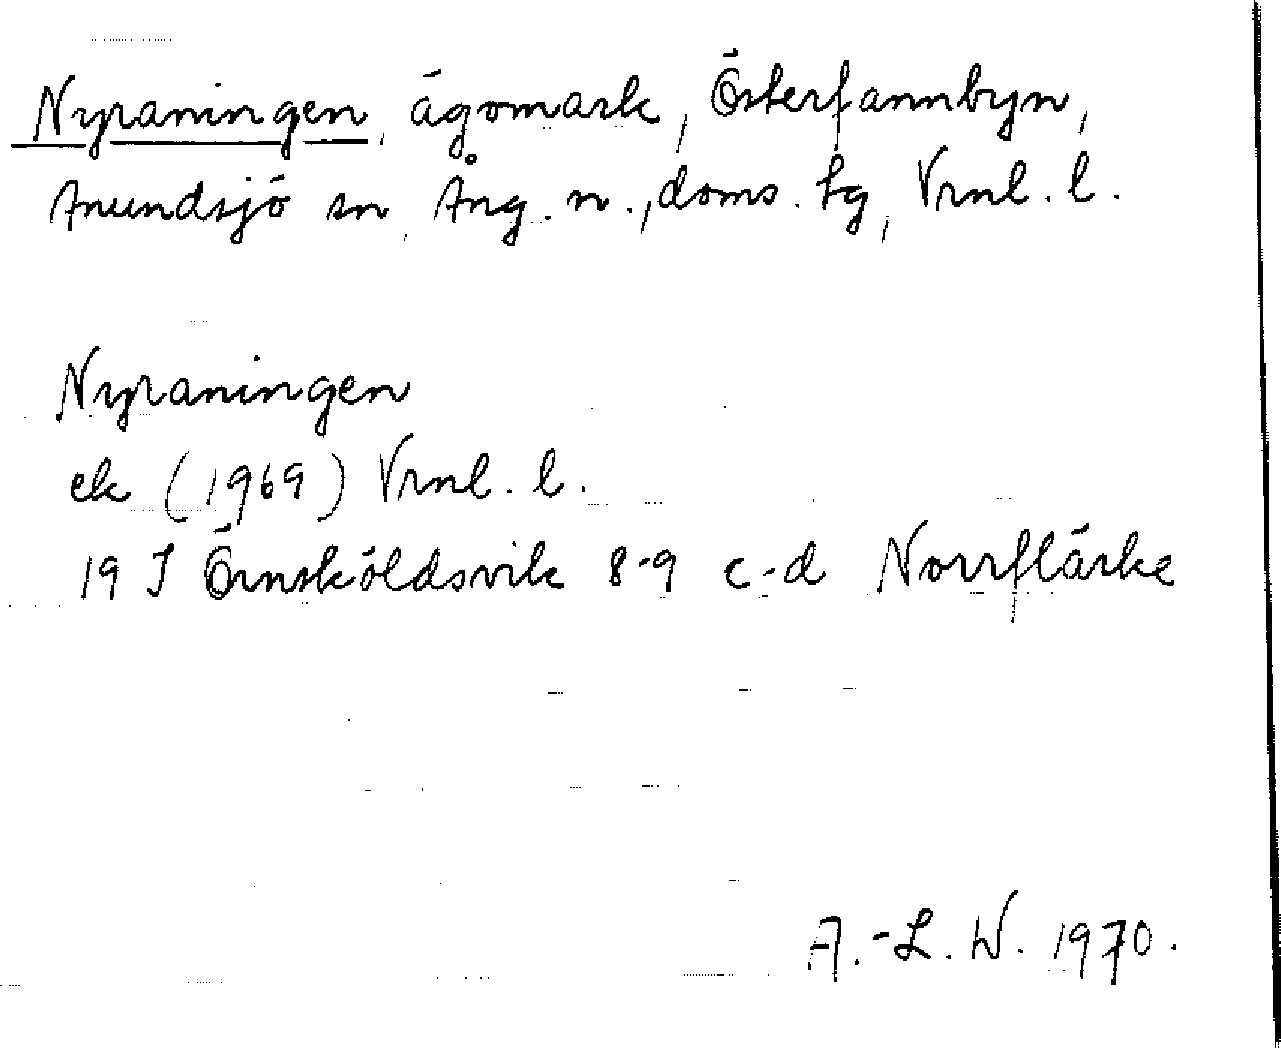 Nyraningen, ägomark, Österfannbyn,
Anundsjö sn, Ång. n., doms. tg, Vrnl. l.
Nyraningen
ek (1969) Vrnl. l.
19 J Örnsköldsvik 8-9 c-d Norrflärke
A.-L. W. 1970.